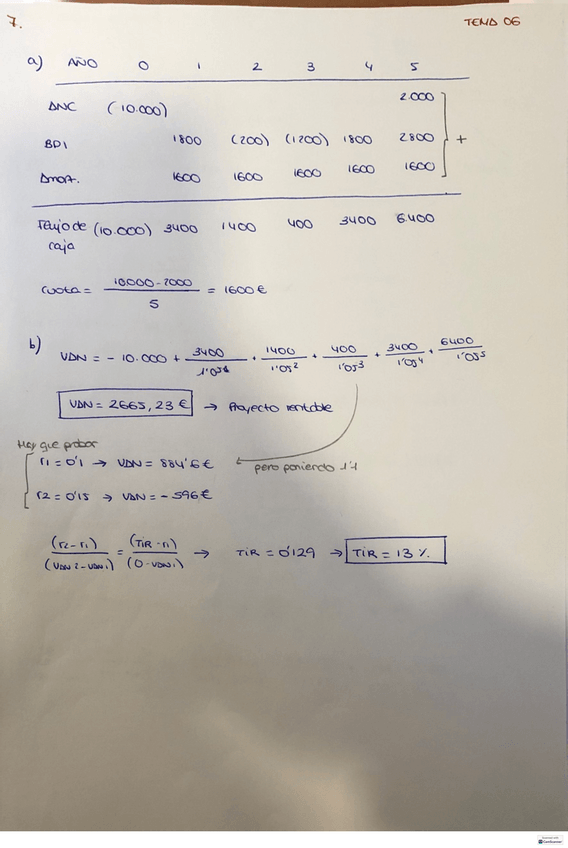 7.
TEMA 06
a) AÑO 0 1 2 3 4 5
ANC (10.000) 2.000
BDI 1800 (200) (1200) 1800 2800 +
Amort. 1600 1600 1600 1600 1600
Flujo de caja (10.000) 3400 1400 400 3400 6.400
cuota = (10.000 - 2000) / 5 = 1600 €
b) VAN = - 10.000 + 3400/1'05¹ + 1400/1'05² + 400/1'05³ + 3400/1'05⁴ + 6400/1'05⁵
VAN = 2665,23 € → Proyecto rentable
Hay que probar
r1 = 0'1 → VAN = 884'6 € ← pero poniendo 1'1
r2 = 0'15 → VAN = - 596 €
(r2 - r1) / (VAN2 - VAN1) = (TIR - r1) / (0 - VAN1) → TIR = 0'129 → TIR = 13 %
CamScanner